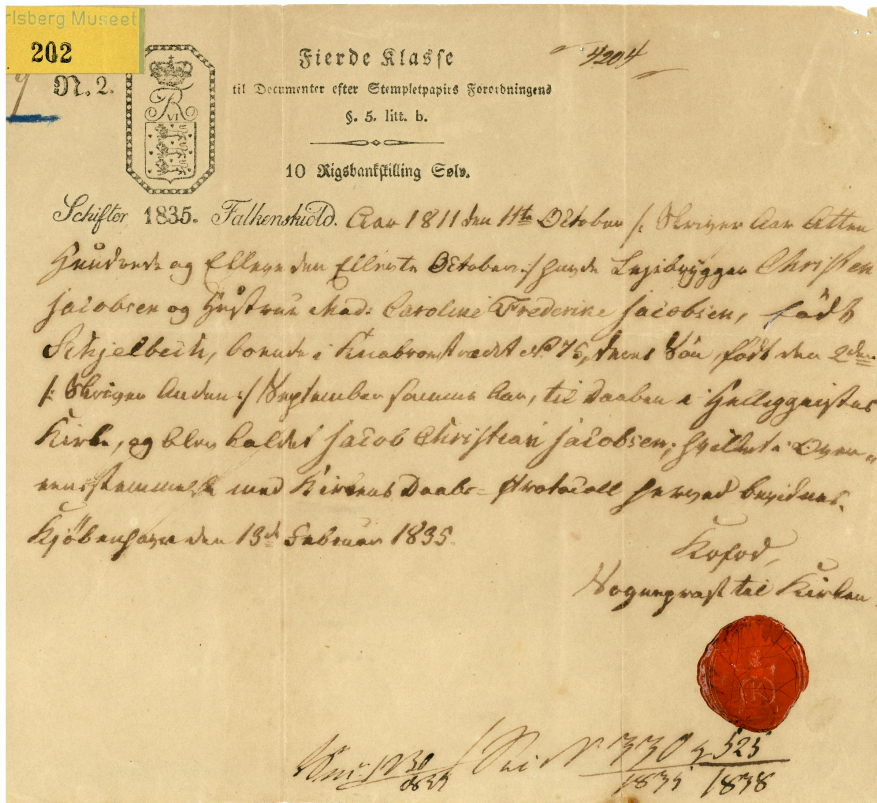 rlsberg Museet
202
N. 2.
FR VI
Fierde Klasse
4204
til Documenter efter Stempletpapiirs Forordningens
§. 5. litt. b.
10 Rigsbankskilling Sølv.
Schifter 1835. Falkenskiold. Aar 1811 den 11te October /: Skriver Aar Atten
Hundrede og Elleve den Ellevte October :/ havde Christen
Jacobsen og Hustrue Mad: Caroline Frederike Jacobsen, född
Schjelbech, boende i Knabrostrædet No 75, deres Søn, født den 2den
/: Skriver Anden :/ September samme Aar, til Daaben i Helliggeistes
Kirke, og blev kaldet Jacob Christian Jacobsen; hvilket i Over-
eensstemmelse med Kirkens Daabs-Protocoll herved bevidnes.
Kjöbenhavn den 13de Februar 1835.
Kofod,
Sognepræst til Kirken
330 525
1835 1838